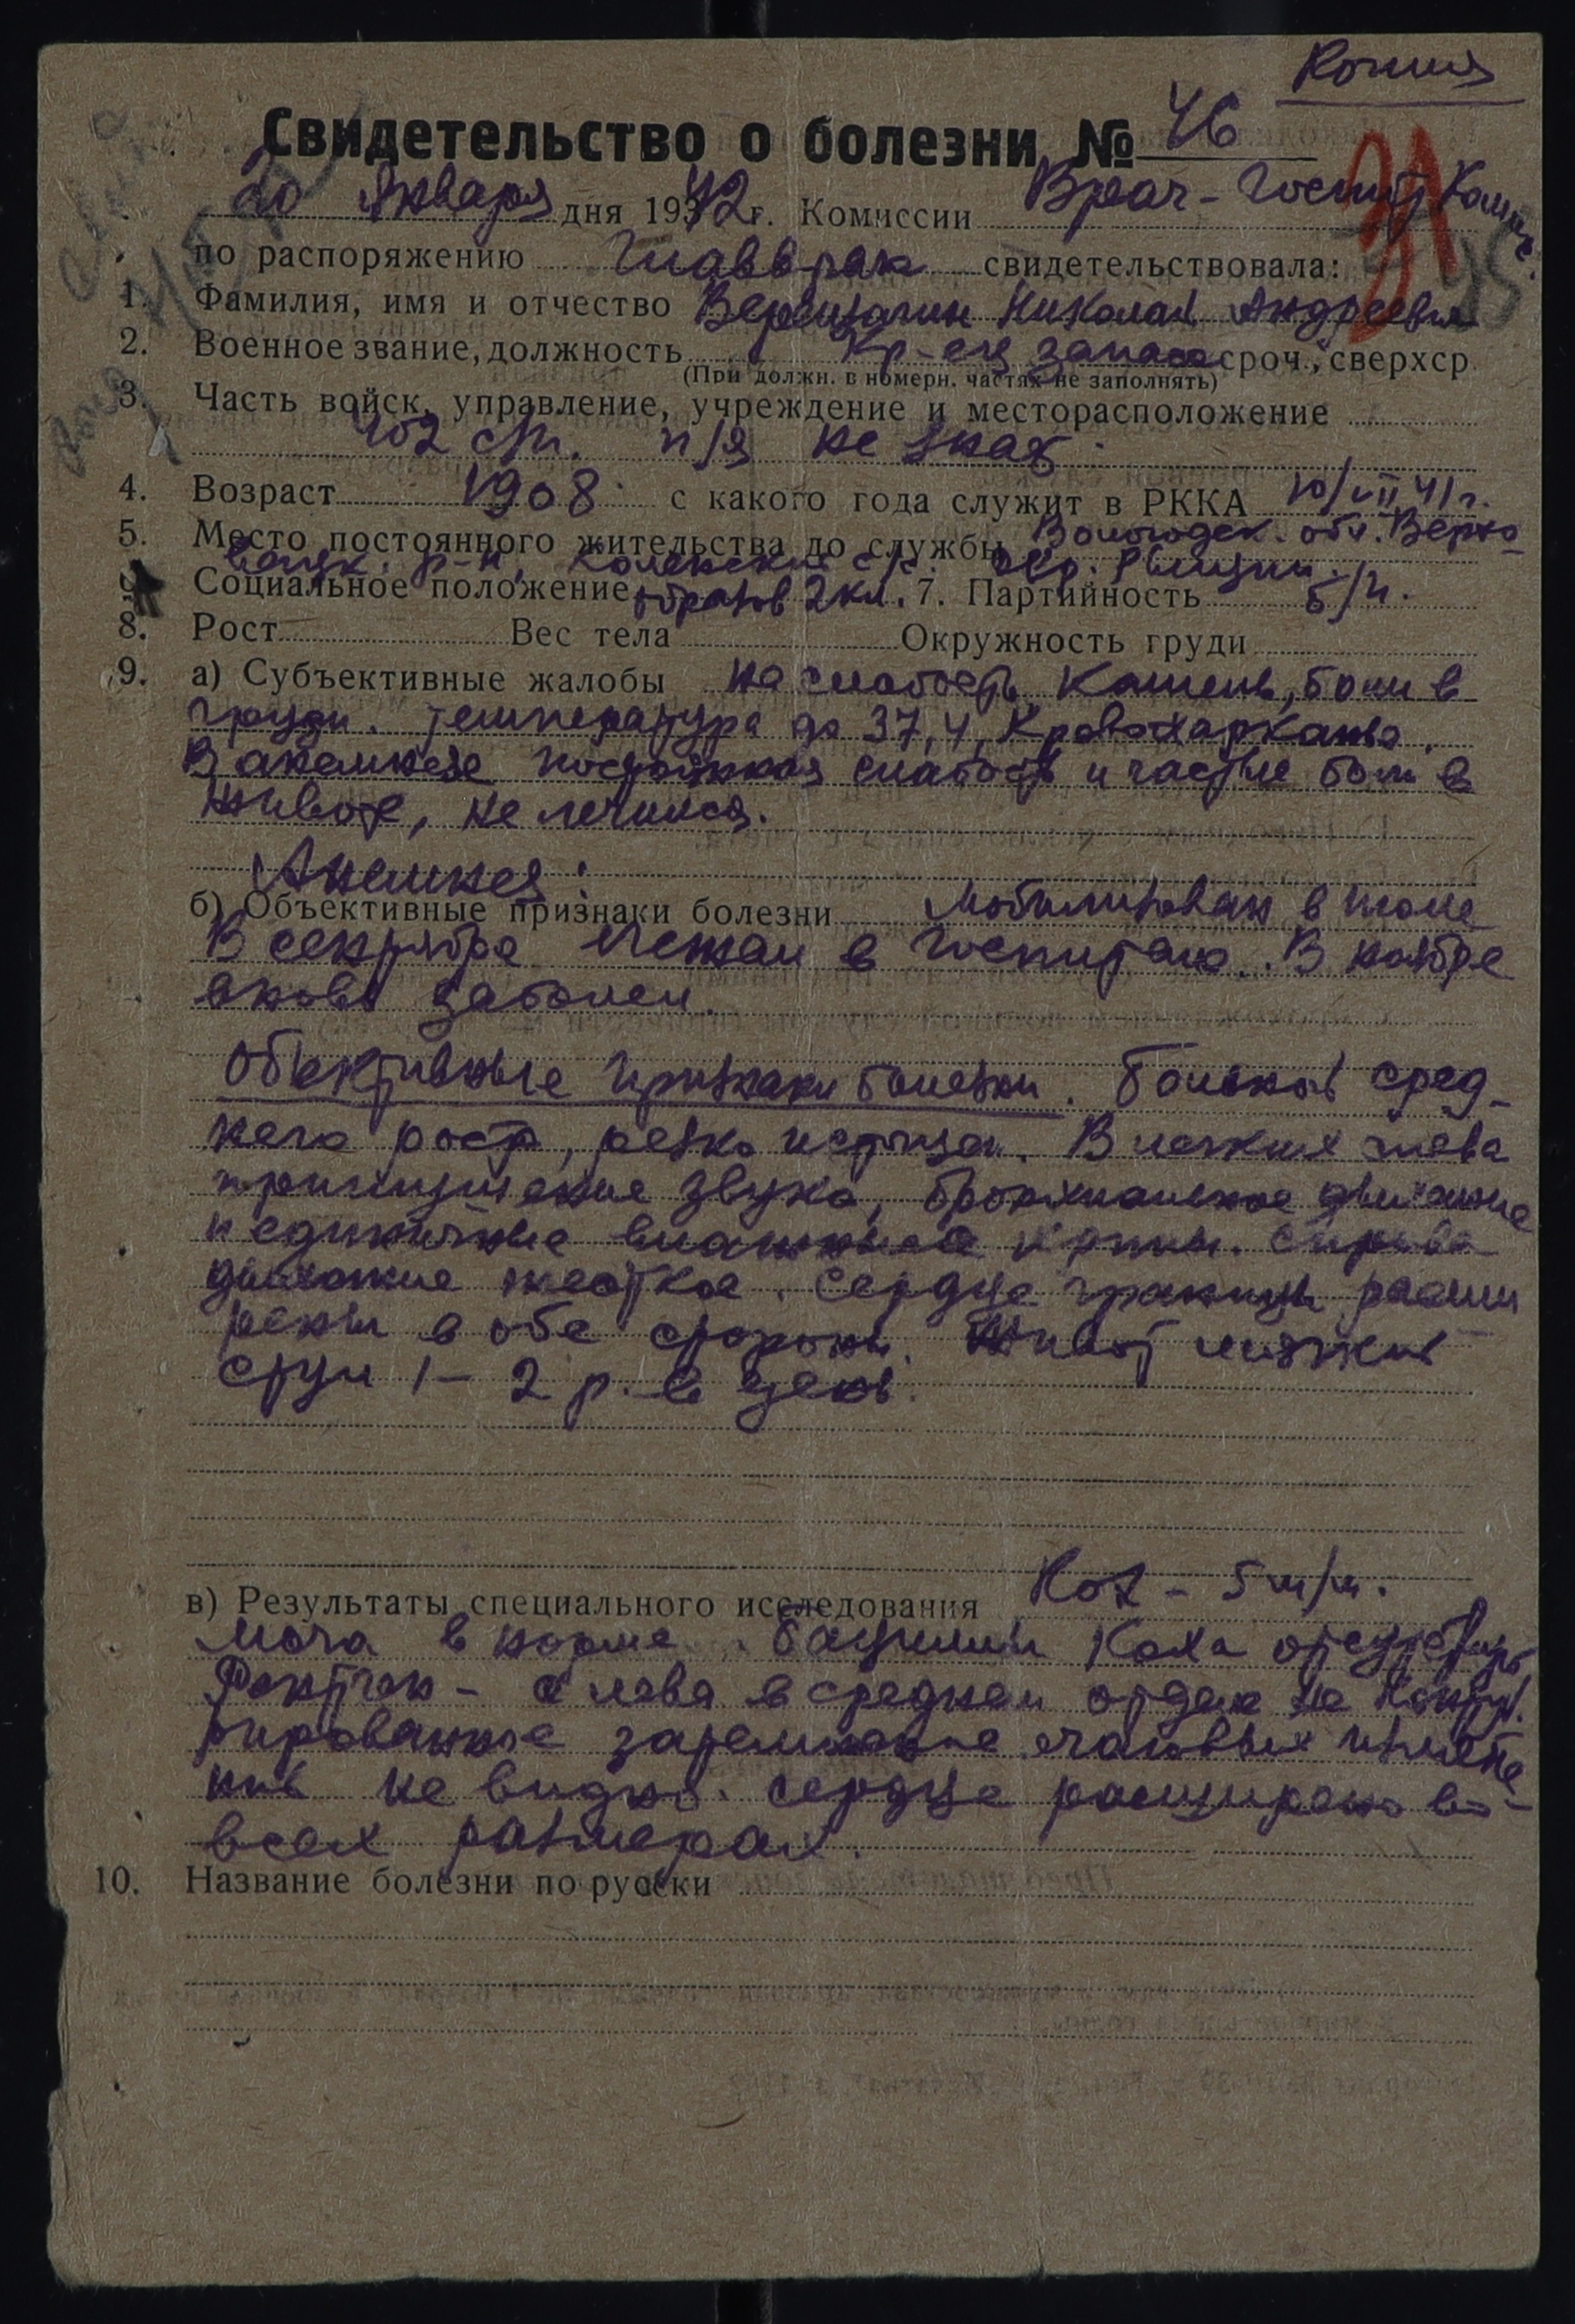 Копия
Свидетельство о болезни № 46
20 Января дня 1942 г. Комиссии Врач-Госпит Комис.
по распоряжению Главврач свидетельствовала:
1. Фамилия, имя и отчество Верещагин Николай Андреевич
2. Военное звание, должность Кр-ец запаса сроч., сверхср.
(При должн. в номерн. частях не заполнять)
3. Часть войск, управление, учреждение и месторасположение
402 сп. п/я не знает
4. Возраст 1908 с какого года служит в РККА 10/VII 41 г.
5. Место постоянного жительства до службы Вологодск. обл. Верхо-
важск. р-н, с/с. дер.
Социальное положение образов 2 кл. 7. Партийность б/п.
8. Рост Вес тела Окружность груди
9. а) Субъективные жалобы на слабость, кашель, боли в
груди. температура до 37,4, Кровохарканье.
В анамнезе постоянная слабость и частые боли в
животе, не лечился.
Анамнез:
б) Объективные признаки болезни Мобилизован в июле
В сентябре лежал в госпитале. В ноябре
вновь заболел.
Объективные признаки болезни. Больной сред-
него роста, резко истощен. В легких слева
притупление звука, бронхиальное дыхание
и единичные влажные хрипы. Справа
дыхание жесткое. Сердце границы расши
рены в обе стороны. Живот мягкий
стул 1-2 р. в день.
в) Результаты специального исследования 5 м/м.
Моча в норме. Бациллы Коха отсутствуют
Рентген - слева в среднем отделе не конту.
рированное затемнение очаговых измене
ний не видно. Сердце расширено во-
всех размерах.
10. Название болезни по русски